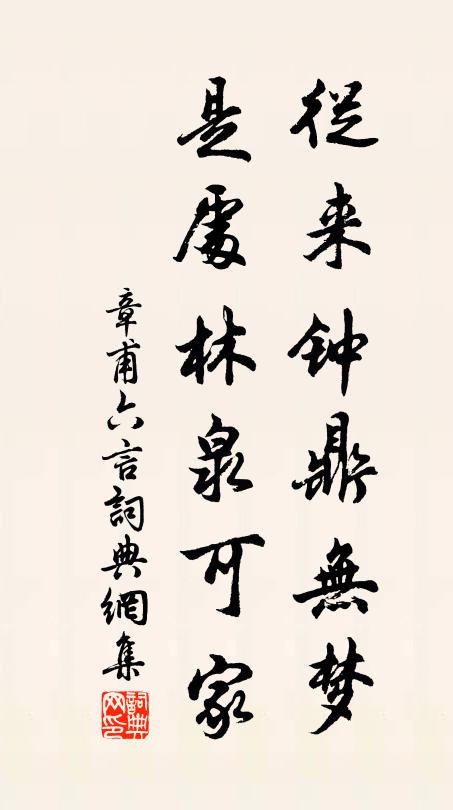 從来钟鼎無梦
是處林泉可家
章甫六言詞典網集
詞典网印